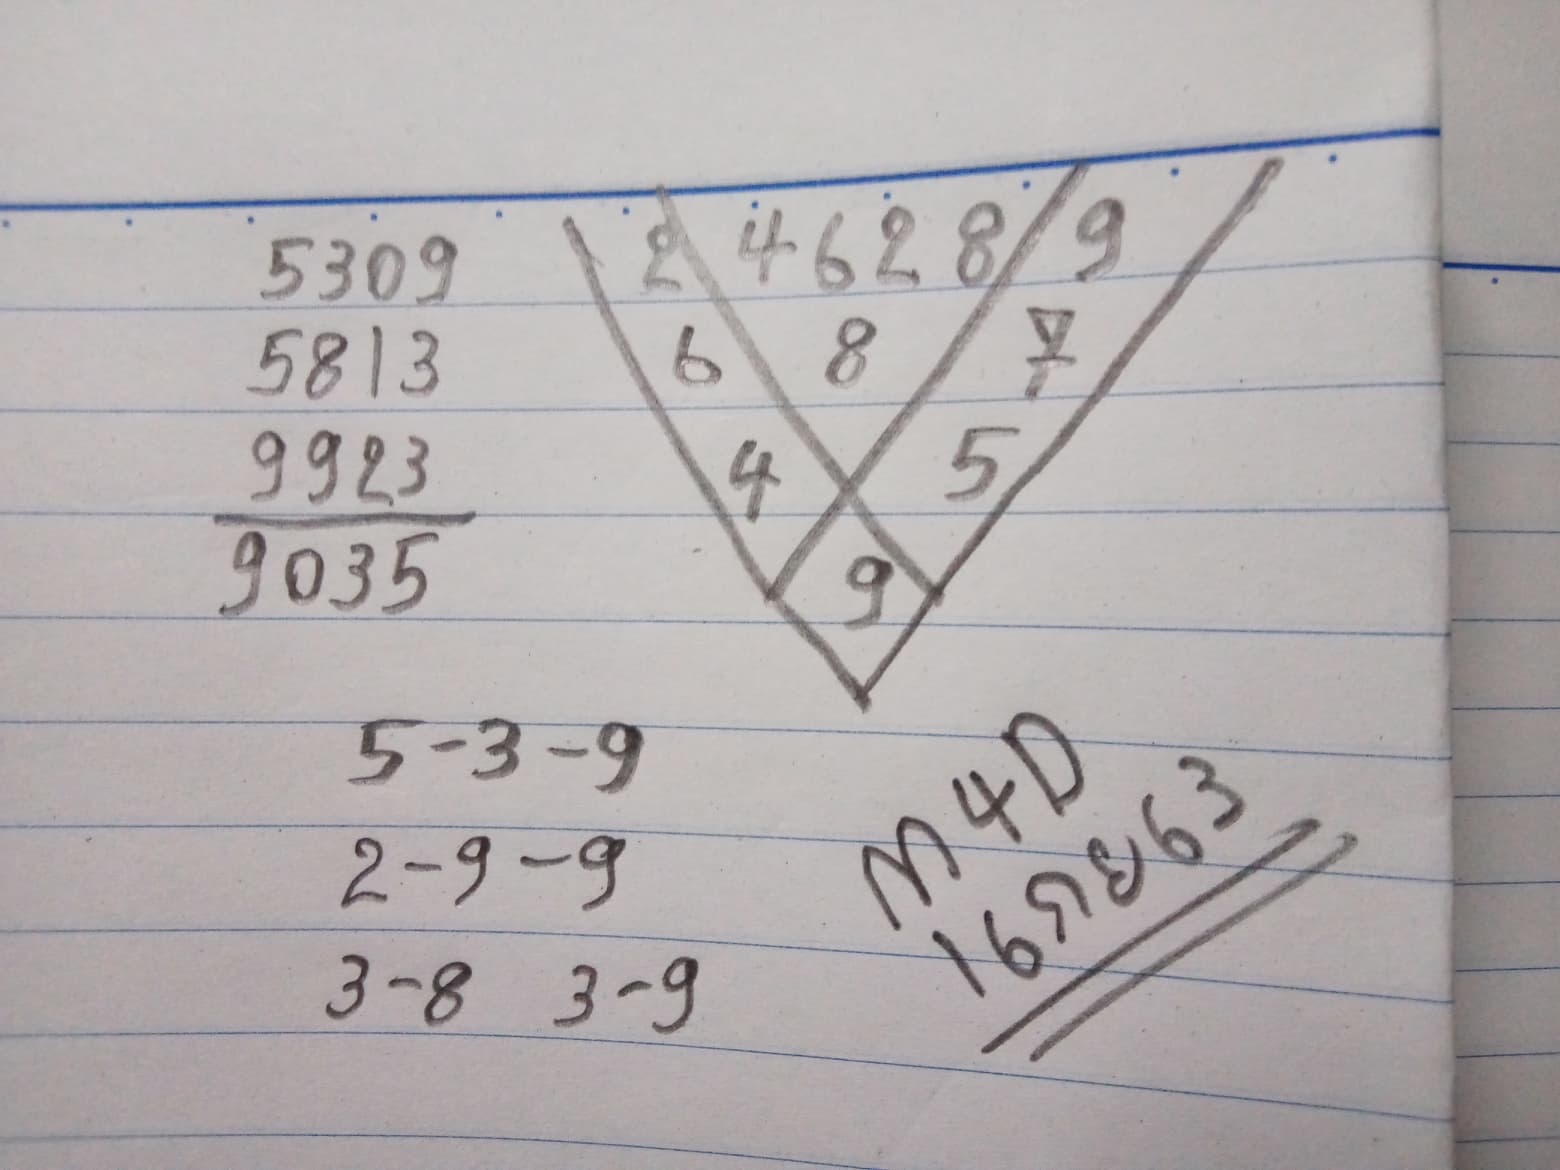 5309
5813
9923
9035
2 4 6 2 8 9
6 8 7
4 5
9
5-3-9
2-9-9
3-8 3-9
M4D
16 กย 63